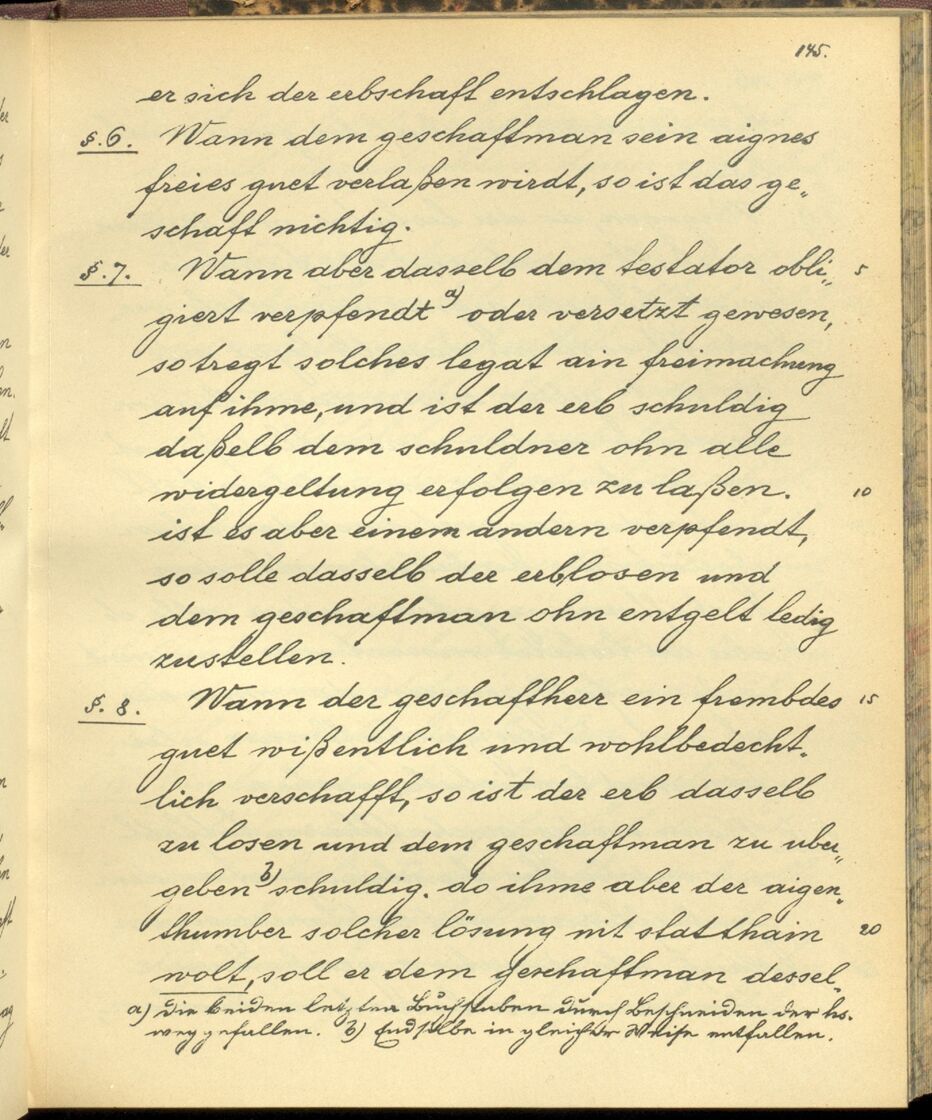 145.
er sich der erbschaft entschlagen.
§.6. Wann dem geschaftman sein aignes
freies guet verlaßen wirdt, so ist das ge„
schaft nichtig.
§.7. Wann aber dasselb dem testator obli„ 5
giert verpfendt a) oder versetzt gewesen,
so tregt solches legat ain freimachung
auf ihme, und ist der erb schuldig
daßelb dem schuldner ohn alle
widergeltung erfolgen zu laßen. 10
ist es aber einem andern verpfendt,
so solle dasselb der erb losen und
dem geschaftman ohn entgelt ledig
zustellen.
§. 8. Wann der geschaftherr ein frembdes 15
guet wißentlich und wohlbedecht„
lich verschafft, so ist der erb dasselb
zu losen und dem geschaftman zu uber„
geben b) schuldig. do ihme aber der aigen„
thumber solcher lösung nit statthain 20
wolt, soll er dem geschaftman dessel„
a) die beiden letzten Buchstaben durch Beschneiden der hs.
weggefallen. b) Endsilbe in gleicher Weise entfallen.